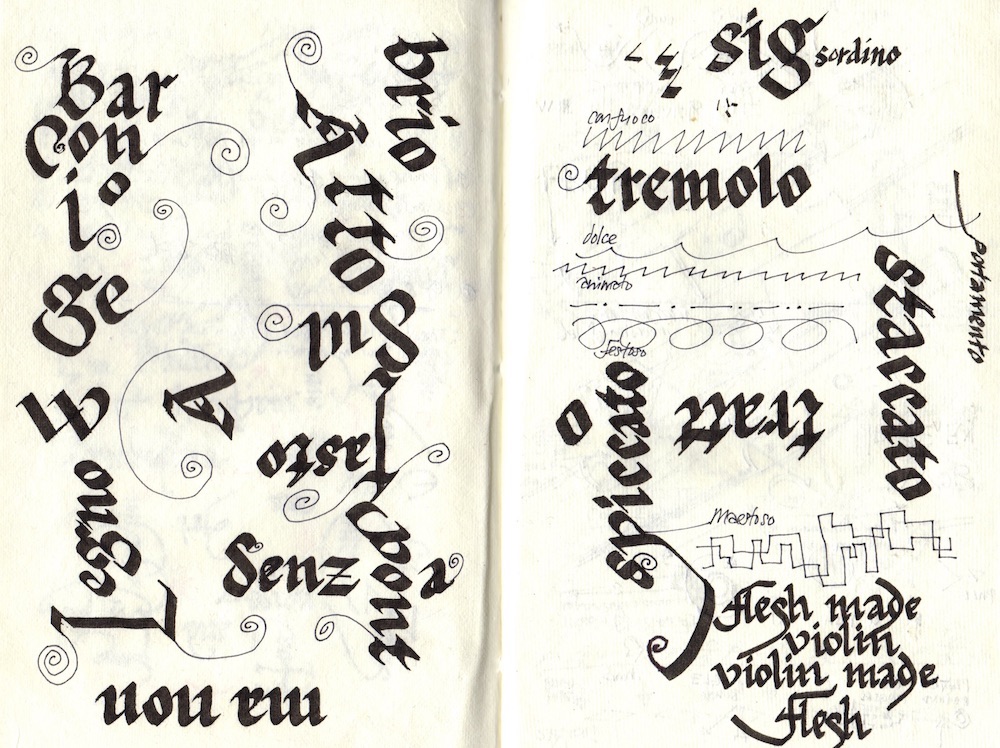 Bar
Con
io
Ge
W
A
Legno
ma non
brio
A
tto
Sul
Tasto
Tasto
Senz
a
pont
sig
sordino
con fuoco
tremolo
dolce
animato
Portamento
staccato
Festoso
tratt
o
spiccato
Maestoso
flesh made
violin
violin made
flesh